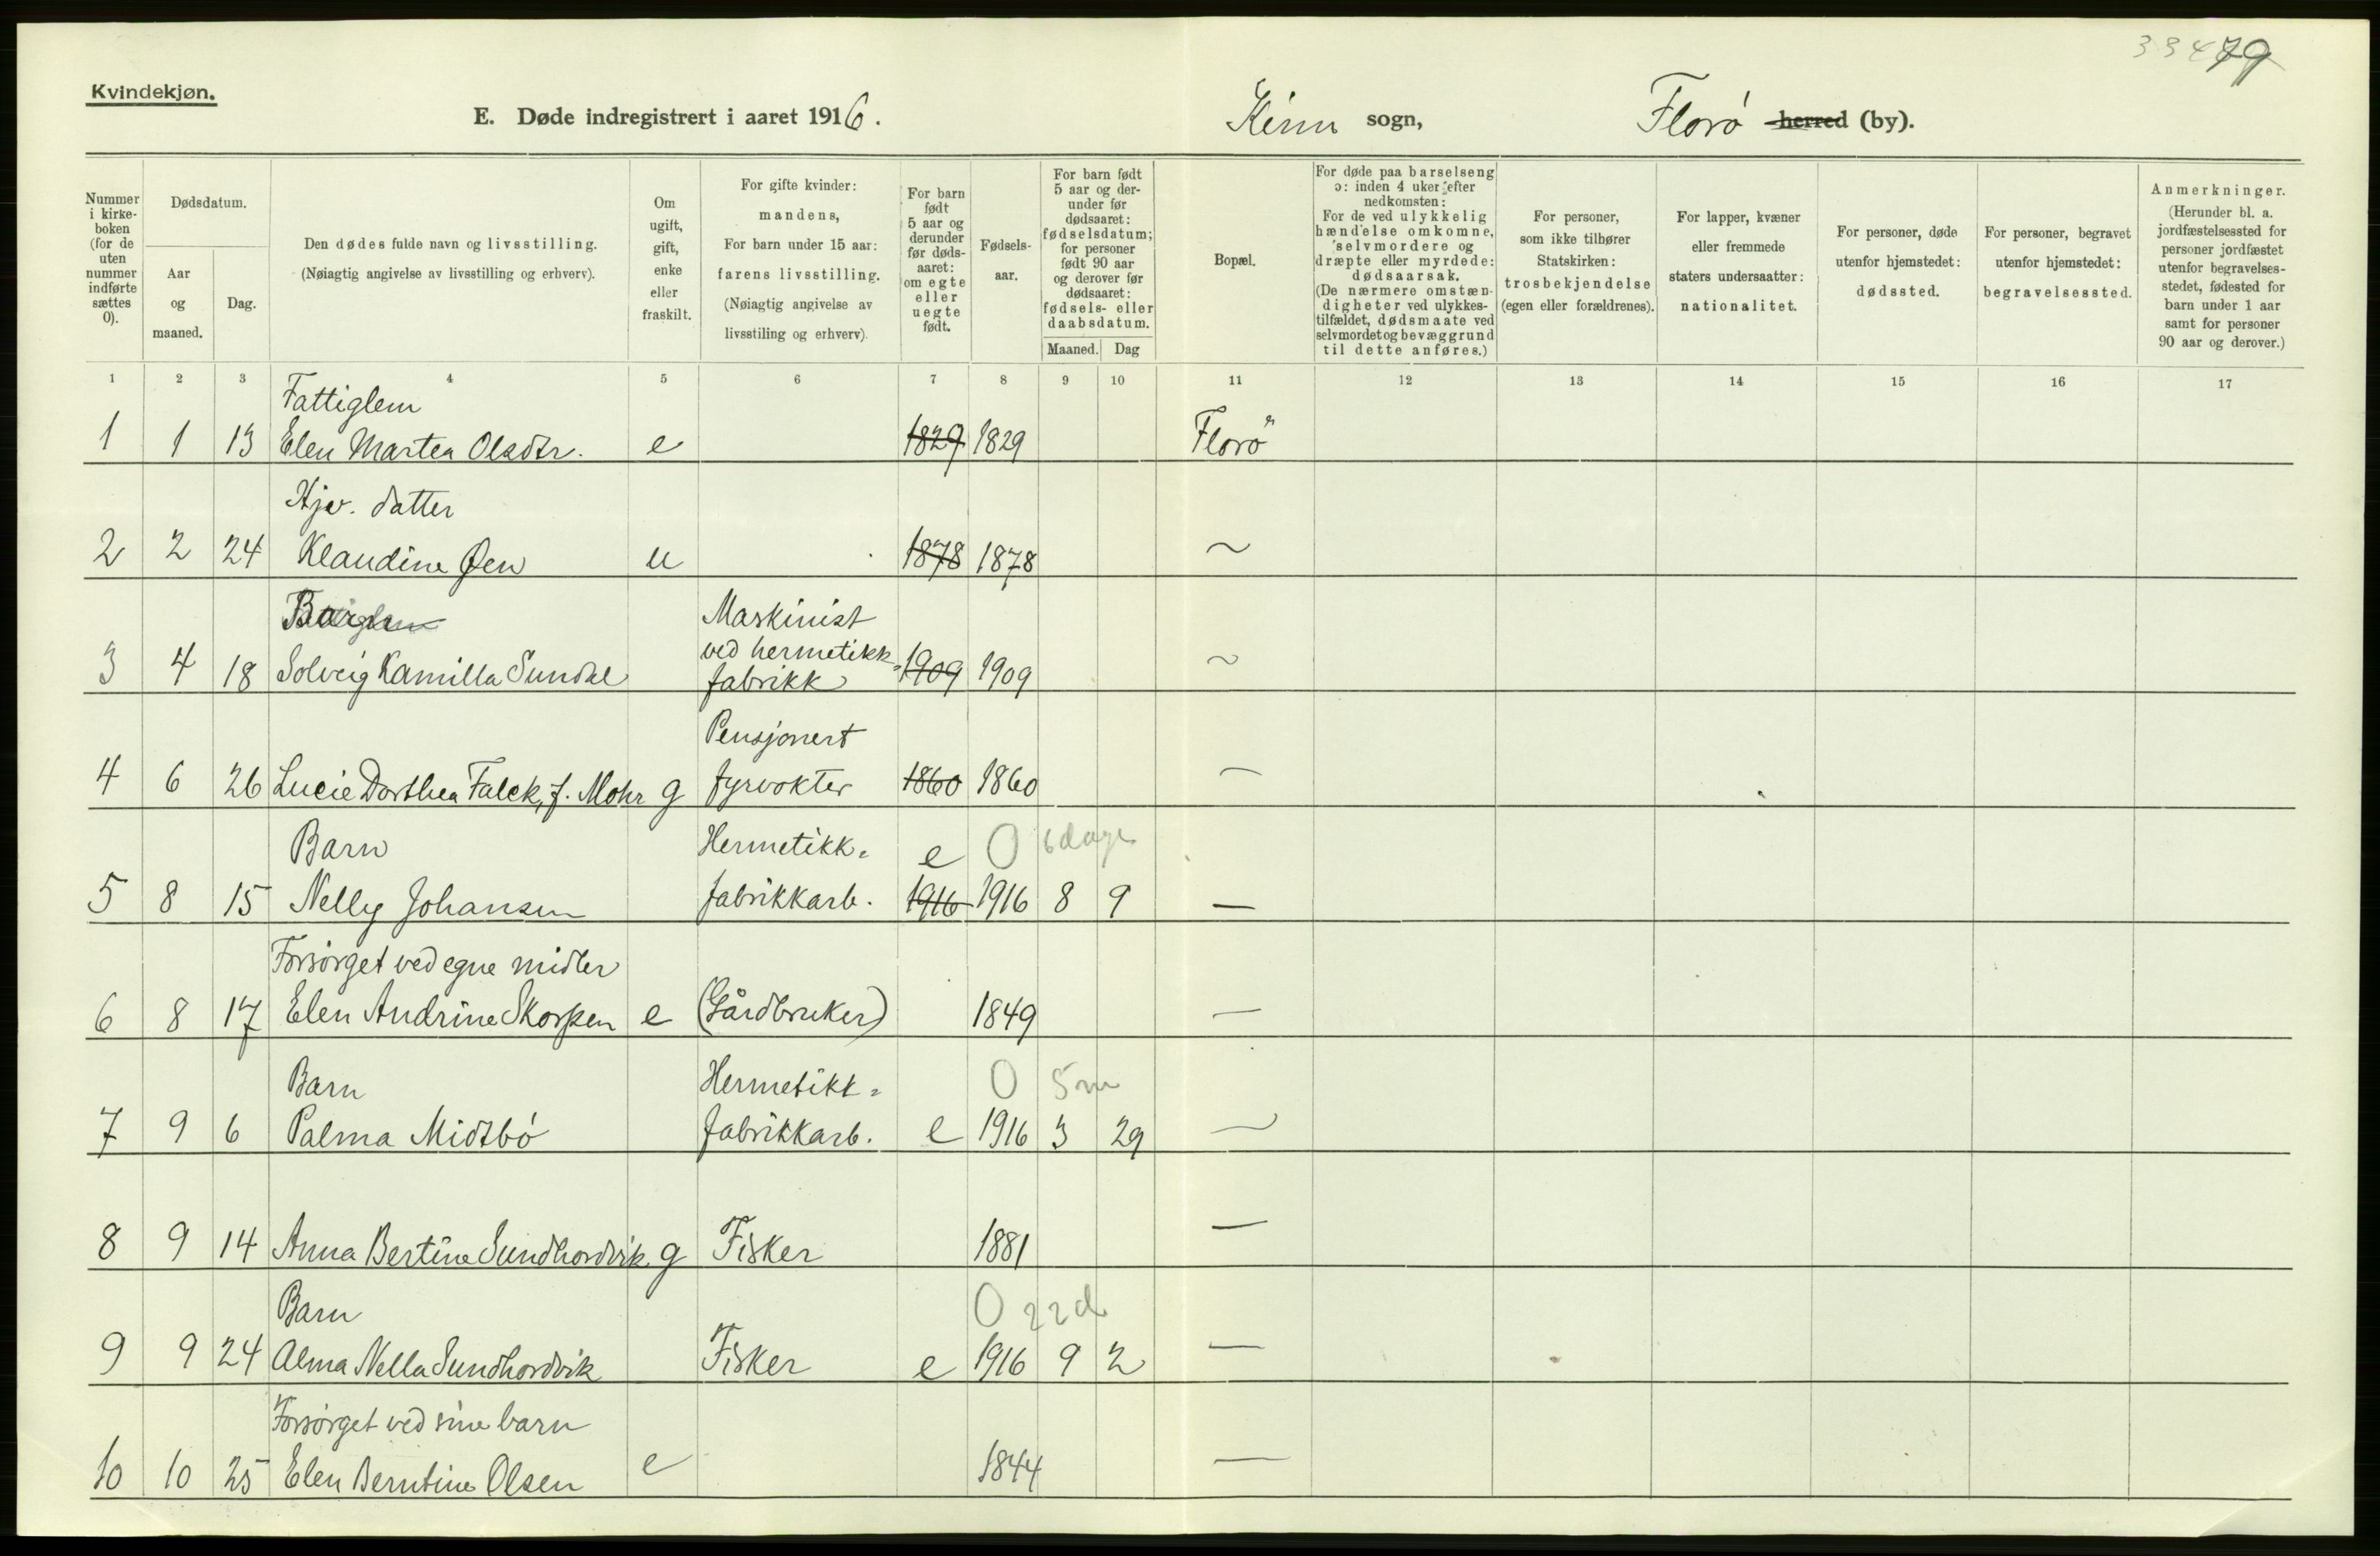 33479
Kvindekjøn.
E. Døde indregistrert i aaret 1916.
Kinn sogn,
Florø herred (by).
Nummer i kirke-boken (for de uten nummer indførte sættes 0).
Dødsdatum.
Aar og maaned.
Dag.
Den dødes fulde navn og livsstilling.
(Nøiagtig angivelse av livsstilling og erhverv).
Om ugift, gift, enke eller fraskilt.
For gifte kvinder: mandens,
For barn under 15 aar: farens livsstilling.
(Nøiagtig angivelse av livsstiling og erhverv).
For barn født 5 aar og derunder før døds-aaret: om egte eller uegte født.
Fødsels-aar.
For barn født 5 aar og der-under før dødsaaret: fødselsdatum; for personer født 90 aar og derover før dødsaaret: fødsels- eller daabsdatum.
Maaned. Dag
Bopæl.
For døde paa barselseng ɔ: inden 4 uker efter nedkomsten:
For de ved ulykkelig hændelse omkomne, selvmordere og dræpte eller myrdede: dødsaarsak.
(De nærmere omstæn-digheter ved ulykkes-tilfældet, dødsmaate ved selvmordet og bevæggrund til dette anføres.)
For personer, som ikke tilhører Statskirken: trosbekjendelse (egen eller forældrenes).
For lapper, kvæner eller fremmede staters undersaatter: nationalitet.
For personer, døde utenfor hjemstedet: dødssted.
For personer, begravet utenfor hjemstedet: begravelsessted.
Anmerkninger.
(Herunder bl. a. jordfæstelsessted for personer jordfæstet utenfor begravelses-stedet, fødested for barn under 1 aar samt for personer 90 aar og derover.)
1 2 3 4 5 6 7 8 9 10 11 12 13 14 15 16 17
Fattiglem
1 1 13 Elen Martea Olsdtr. e 1829 1829 Florø
Hjv. datter
2 2 24 Klaudine Øen u 1878 1878 ~
Barn Maskinist
ved hermetikk-
3 4 18 Solveig Kamilla Sundal fabrikk 1909 1909 ~
Pensjonert
4 6 26 Lucie Dorthea Falck, f. Mohr g fyrvokter 1860 1860 —
Barn Hermetikk- e 0 6 dage
5 8 15 Nelly Johansen fabrikkarb. 1916 1916 8 9 —
Forsørget ved egne midler
6 8 17 Elen Andrine Skorpen e (Gårdbruker) 1849 —
Barn Hermetikk- 0 5 m
7 9 6 Palma Midtbø fabrikkarb. e 1916 3 29 —
8 9 14 Anna Bertine Sundhordvik g Fisker 1881 —
Barn 0 22 d
9 9 24 Alma Nella Sundhordvik Fisker e 1916 9 2 —
Forsørget ved sine barn
10 10 25 Elen Berntine Olsen e 1844 —